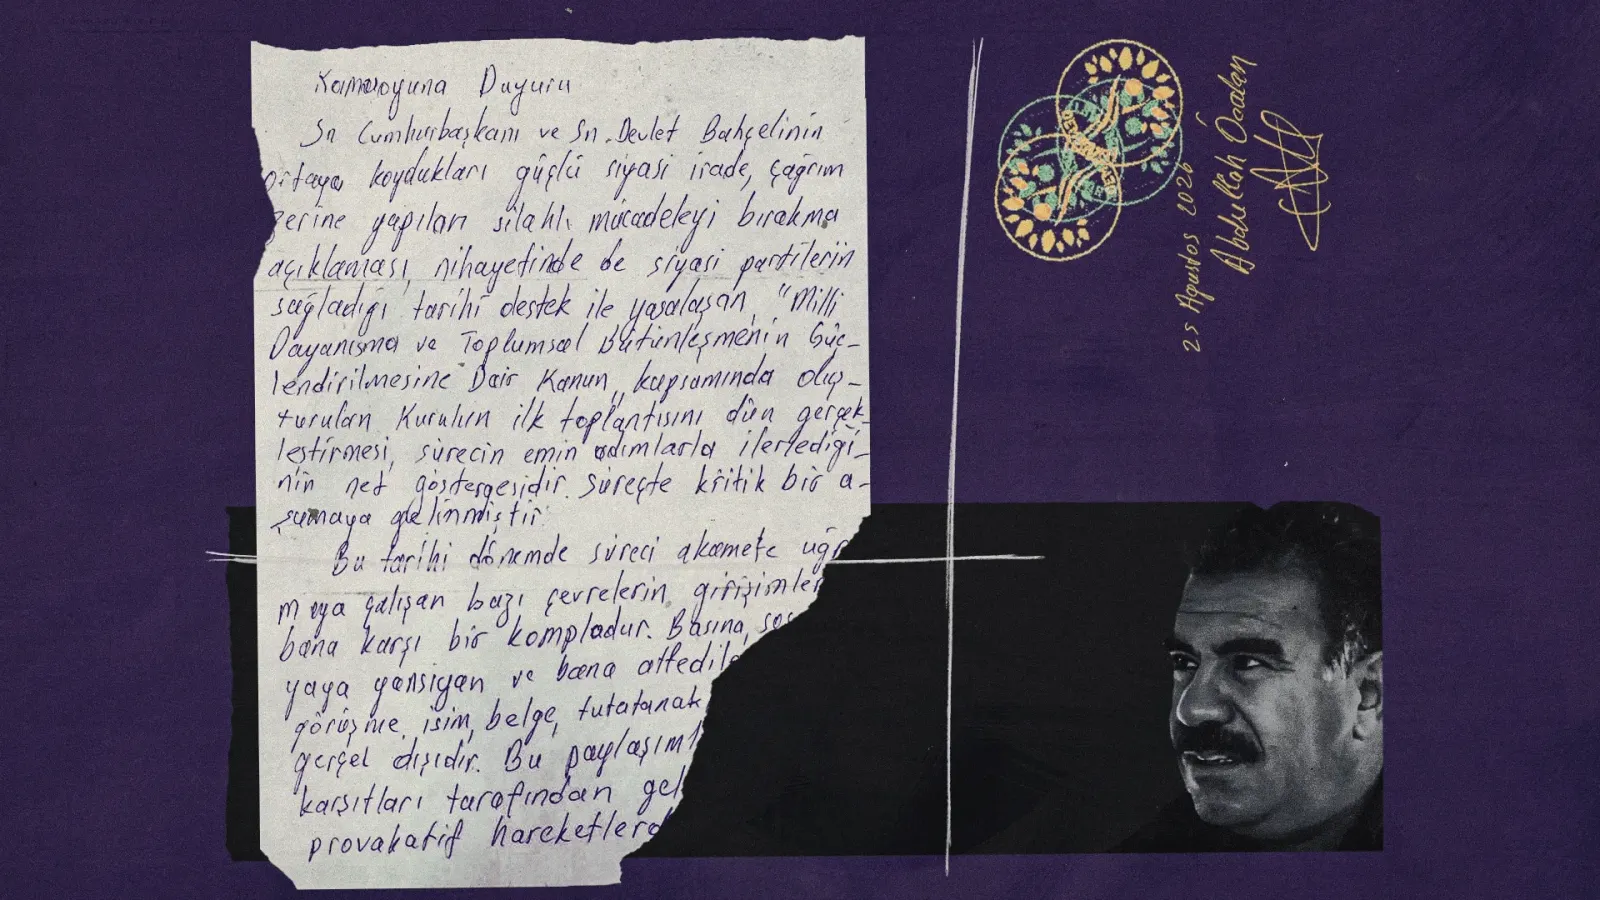 Kamuoyuna Duyuru
Sn Cumhurbaşkanı ve Sn. Devlet Bahçelinin
ortaya koydukları güçlü siyasi irade, çağrım
zerine yapılan silahlı mücadeleyi bırakma
açıklaması, nihayetinde de siyasi partilerin
sağladığı tarihi destek ile yasalaşan "Milli
Dayanışma ve Toplumsal Bütünleşmenin Güç-
lendirilmesine Dair Kanun" kapsamında oluş-
turulan Kurulun ilk toplantısını dün gerçek-
leştirmesi, sürecin emin adımlarla ilerlediği-
nin net göstergesidir. Süreçte kritik bir a-
şamaya gelinmiştir.
Bu tarihi dönemde süreci akamete uğr
maya çalışan bazı çevrelerin girişimler
bana karşı bir kompladur. Basına, sos
yaya yansıyan ve bana atfedile
görüşme, isim, belge, tutatanak
gerçel dışıdır. Bu paylaşıml
karşıtları tarafından gel
provakatif hareketlerd
25 Ağustos 2026
Abdullah Öcalan